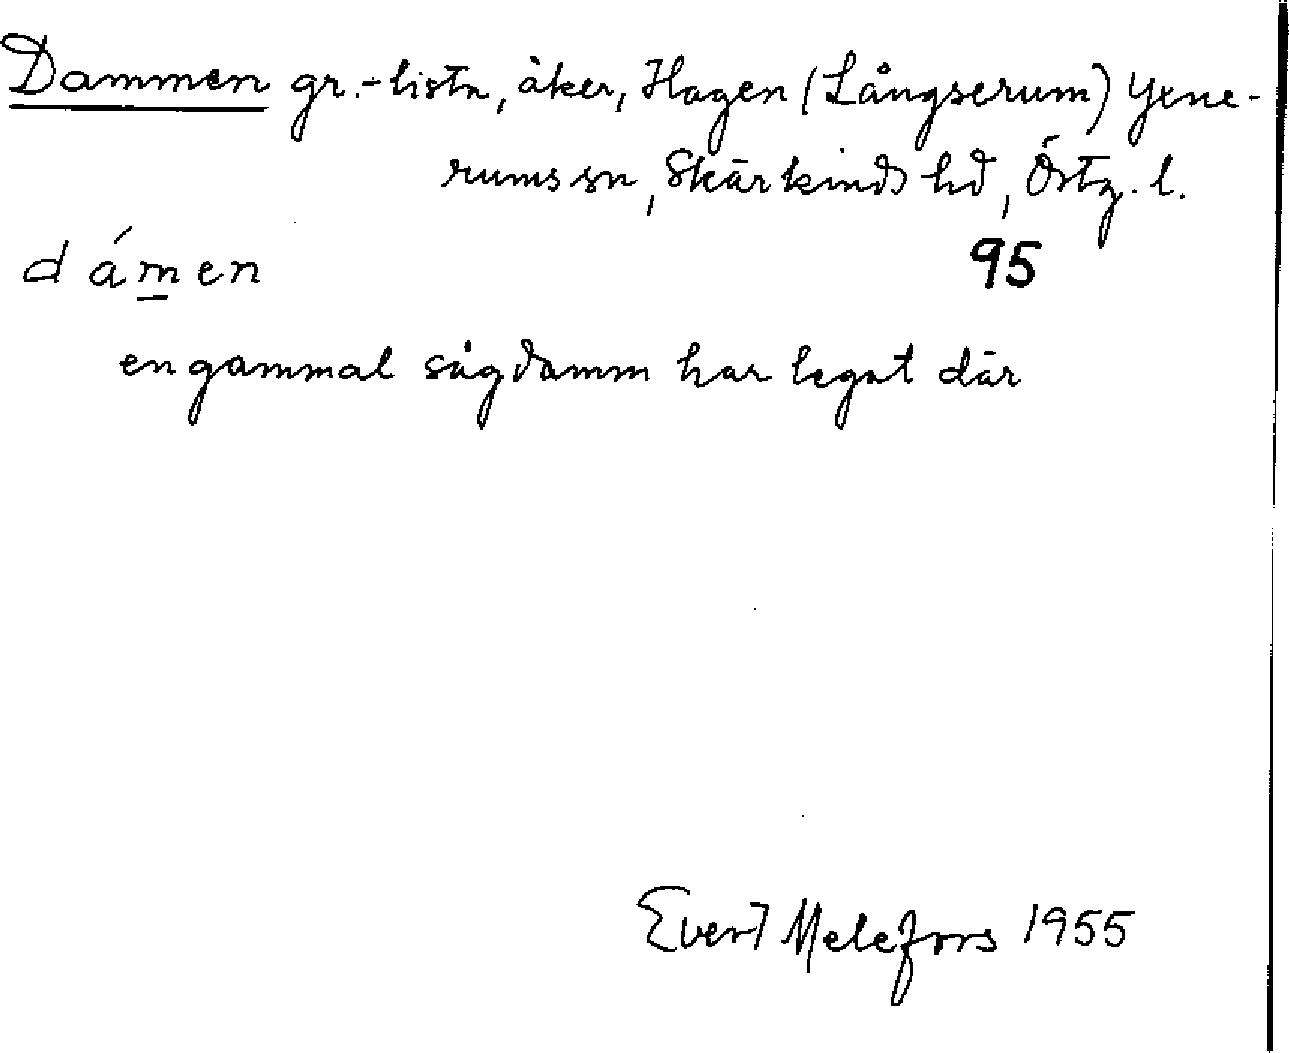 Dammen gr.-lista, åker, Hagen (Långserum) Yxne-
rums sn, Skärkinds hd, Östg. l.
dámen 95
en gammal sågdamm har legat där
Evert Melefors 1955